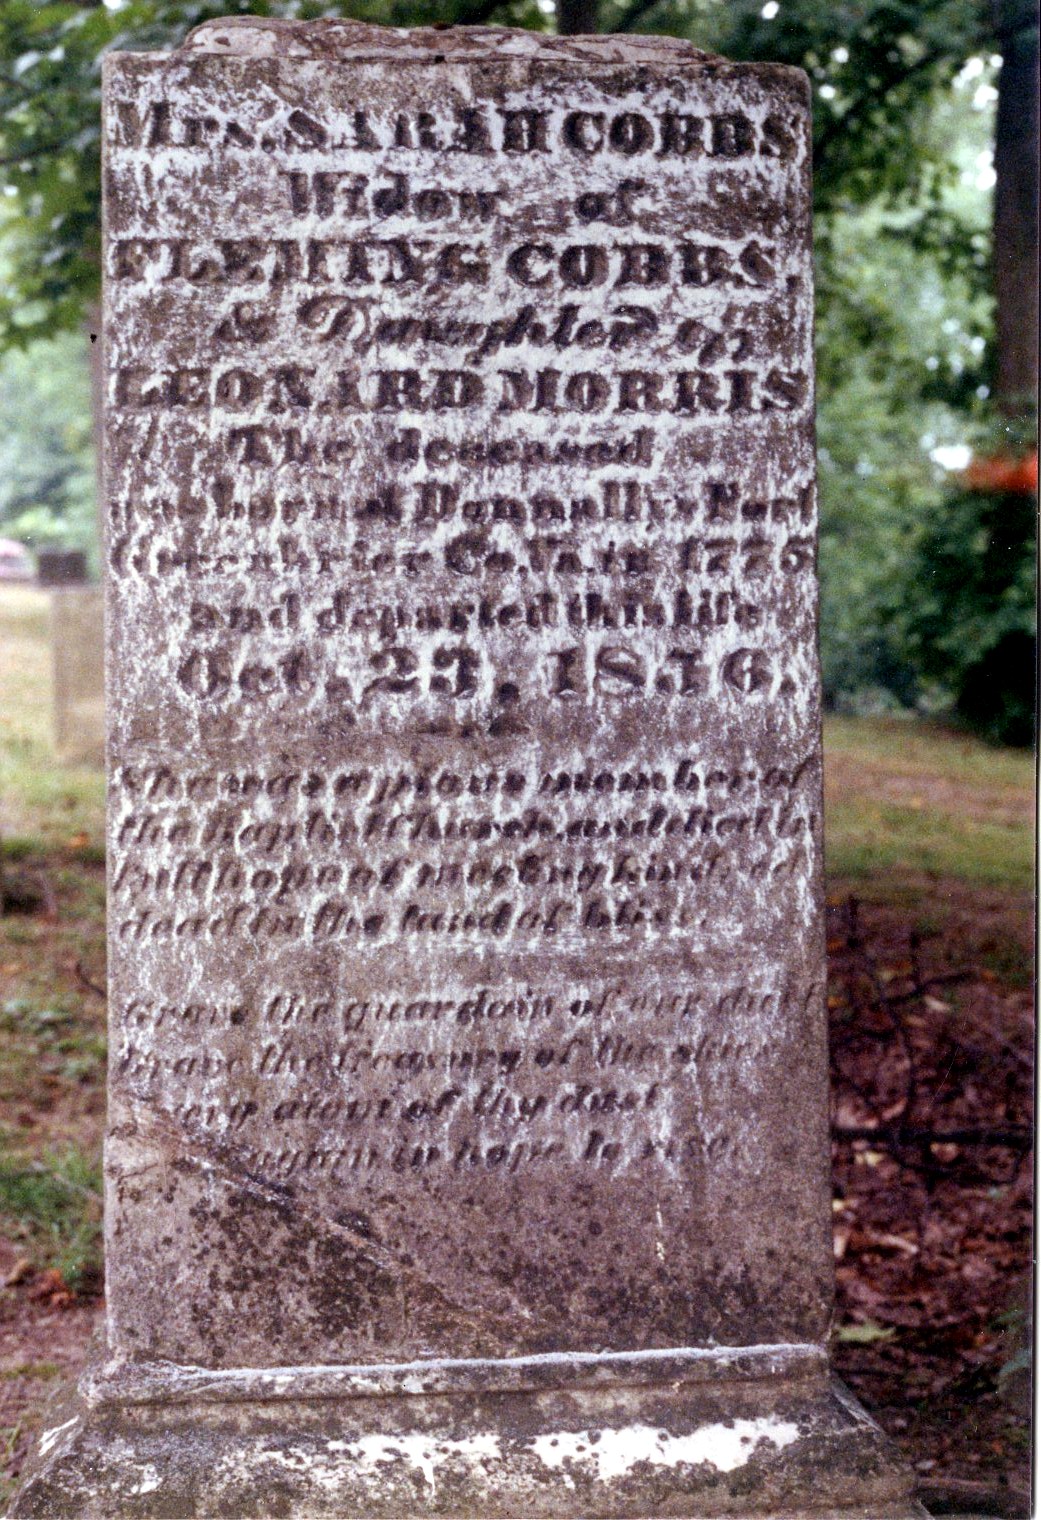 Mrs. SARAH COBBS
Widow of
FLEMING COBBS,
& Daughter of
LEONARD MORRIS
The deceased
was born at Donnally's Fort
Greenbrier Co. Va. in 1776
and departed this life
Oct. 23, 1856.
She was a pious member of
the Baptist Church, and died in
full hope of meeting kind
dead in the land of bliss.
Grave the guardain of our dust
Grave the treasury of the skies
Every atom of thy dust
again in hope to rise.